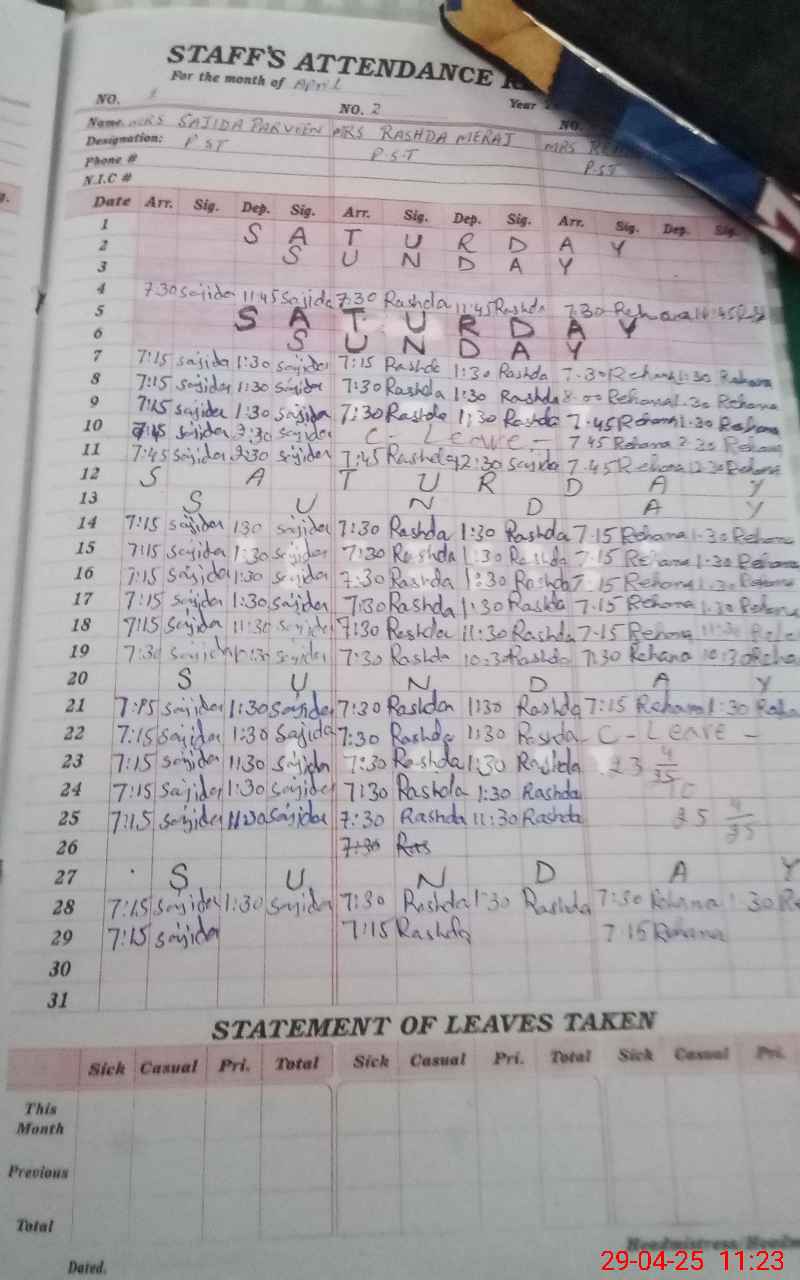 STAFF'S ATTENDANCE R
For the month of April
NO. 1 NO. 2 Year NO.
Name. MRS SAJIDA PARVEEN MRS RASHDA MERAJ MRS
Designation: P ST P.S.T P.ST
Phone #
N.I.C #
Date Arr. Sig. Dep. Sig. Arr. Sig. Dep. Sig. Arr. Sig. Dep. Sig.
1
2 S A T U R D A Y
3 S U N D A Y
4 7:30 Sajida 11:45 Sajida 7:30 Rashda 11:45 Rashda 7:30 Rehana
5 S A T U R D A Y
6 S U N D A Y
7 7:15 Sajida 1:30 Sajida 7:15 Rashda 1:30 Rashda 7:30 Rehana 1:30 Rehana
8 7:15 Sajida 1:30 Sajida 7:30 Rashda 1:30 Rashda 8:00 Rehana 1:30 Rehana
9 7:15 Sajida 1:30 Sajida 7:30 Rashda 1:30 Rashda 7:45 Rehana 1:30 Rehana
10 7:15 Sajida 2:30 Sajida C - Leave - 7:45 Rehana 2:30 Rehana
11 7:45 Sajida 12:30 Sajida 7:45 Rashda 12:30 Sajida 7:45 Rehana 12:30 Rehana
12 S A T U R D A Y
13 S U N D A Y
14 7:15 Sajida 1:30 Sajida 7:30 Rashda 1:30 Rashda 7:15 Rehana 1:30 Rehana
15 7:15 Sajida 1:30 Sajida 7:30 Rashda 1:30 Rashda 7:15 Rehana 1:30 Rehana
16 7:15 Sajida 1:30 Sajida 7:30 Rashda 1:30 Rashda 7:15 Rehana 1:30 Rehana
17 7:15 Sajida 1:30 Sajida 7:30 Rashda 1:30 Rashda 7:15 Rehana 1:30 Rehana
18 7:15 Sajida 11:30 Sajida 7:30 Rashda 11:30 Rashda 7:15 Rehana 11:30
19 7:30 Sajida Sajida 7:30 Rashda 10:30 Rashda 7:30 Rehana 10:30 Reha
20 S U N D A Y
21 7:15 Sajida 1:30 Sajida 7:30 Rashda 1:30 Rashda 7:15 Rehana 1:30 Reha
22 7:15 Sajida 1:30 Sajida 7:30 Rashda 1:30 Rashda C - Leave -
23 7:15 Sajida 1:30 Sajida 7:30 Rashda 1:30 Rashda 23 4/35
24 7:15 Sajida 1:30 Sajida 7:30 Rashda 1:30 Rashda
25 7:15 Sajida 11:30 Sajida 7:30 Rashda 11:30 Rashda 35 4/35
26 7:30 Ras
27 S U N D A Y
28 7:15 Sajida 1:30 Sajida 7:30 Rashda 1:30 Rashda 7:30 Rehana 1:30 Re
29 7:15 Sajida 7:15 Rashda 7:15 Rehana
30
31
STATEMENT OF LEAVES TAKEN
Sick Casual Pri. Total Sick Casual Pri. Total Sick Casual Pri.
This
Month
Previous
Total
Headmistress/Headm
Dated.
29-04-25 11:23